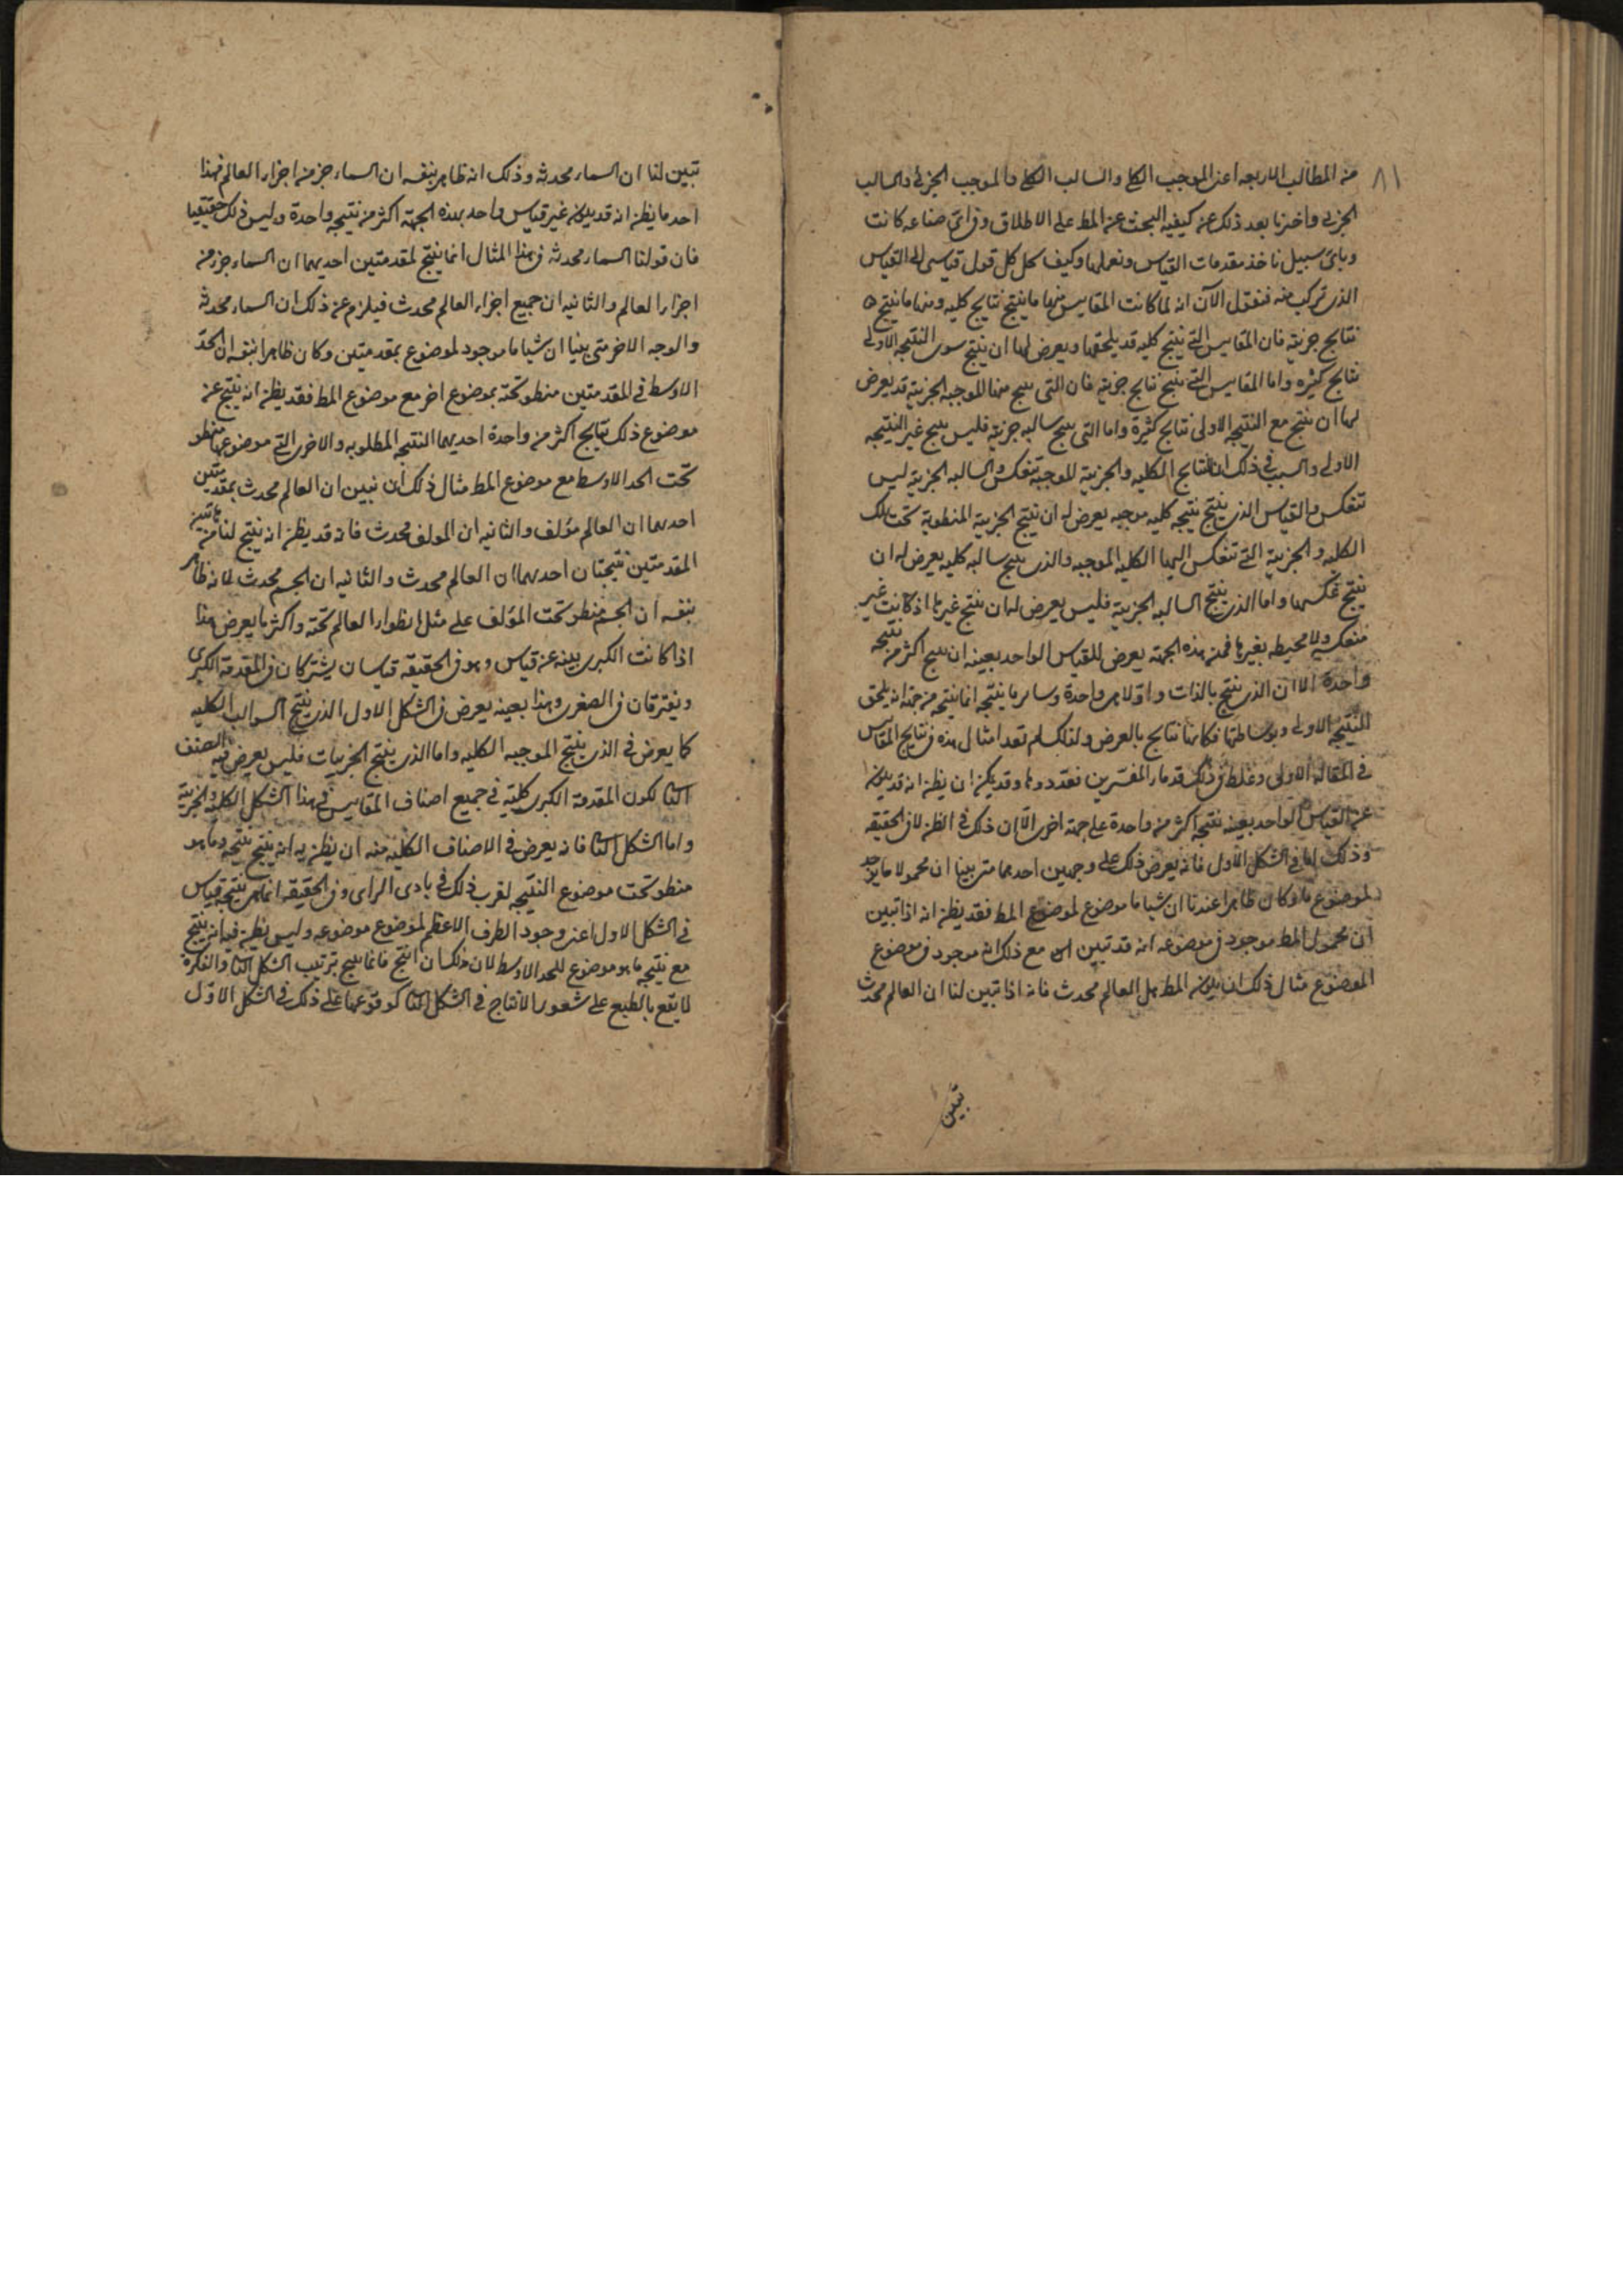 ٨١
من المطالب الاربعه اعنى الموجب الكلى والسالب الكلى والموجب الجزئى والسالب
الجزئى واخبرنا بعد ذلك عن كيفيه البحث عن المط على الاطلاق وفى اى صناعه كانت
وباى سبيل ناخذ مقدمات القياس ونعملها وكيف نحل كل قول قياسى الى القياس
الذى تركب منه فنقول الآن انه لما كانت المقاييس منها ما ينتج نتايج كليه ومنها ما ينتج
نتايج جزئية فان المقاييس التى تنتج كليه قد يلحقها ويعرض لها ان ينتج سوى النتيجه الاولى
نتايج كثيره واما المقاييس التى تنتج نتايج جزئية فان التى ينتج منها الموجبه الجزئية قد يعرض
لها ان ينتج مع النتيجه الاولى نتايج كثيرة واما التى ينتج سالبه جزئية فليس ينتج غير النتيجه
الاولى والسبب فى ذلك ان النتايج الكليه والجزئية الموجبة تنعكس والسالبه الجزئية ليس
تنعكس والقياس الذى ينتج نتيجه كليه موجبه يعرض له ان ينتج الجزئية المنطوية تحت تلك
الكليه والجزئية التى تنعكس اليها الكليه الموجبه والذى ينتج سالبه كليه يعرض له ان
ينتج عكسها واما الذى ينتج السالبه الجزئية فليس يعرض لها ان ينتج غيرها اذ كانت غير
منعكسه ولا محيطه بغيرها فمن هذه الجهه يعرض للقياس الواحد بعينه ان ينتج اكثر من نتيجه
واحدة الا ان الذى ينتج بالذات واولا هى واحدة وساير ما ينتجه انما ينتجه من جهة انه يلحق
النتيجه الاولى وبوساطتها فكانها نتايج بالعرض ولذلك لم تعد امثال هذه فى نتايج المقاييس
فى المقاله الاولى وغلط فى ذلك قدماء المفسرين فعددوها وقد يمكن ان يظن انه قد يكون
عن القياس الواحد بعينه نتيجه اكثر من واحدة على جهة اخرى الا ان ذلك فى الظن لا فى الحقيقه
وذلك اما فى الشكل الاول فانه يعرض ذلك على وجهين احدهما متى بينا ان محمولا ما يوجد
لموضوع ما وكان ظاهرا عندنا ان شيا ما موضوع لموضوع المط فقد يظن انه اذا تبين
ان محمول المط موجود فى موضوعه انه قد تبين مع ذلك انه موجود فى موضوع
الموضوع مثال ذلك ان يكون المط هل العالم محدث فانه اذا تبين لنا ان العالم محدث
تبين
تبين لنا ان السماء محدثه وذلك انه ظاهر بنفسه ان السماء جزء من اجزاء العالم فهذا
احد ما يظن انه قد يكون عن قياس واحد بهذه الجهة اكثر من نتيجه واحدة وليس ذلك حقيقيا
فان قولنا السماء محدثه فى هذا المثال انما ينتج لمقدمتين احديهما ان السماء جزء من
اجزاء العالم والثانيه ان جميع اجزاء العالم محدث فيلزم عن ذلك ان السماء محدثه
والوجه الاخر متى بينا ان شيا ما موجود لموضوع بمقدمتين وكان ظاهرا بنفسه ان الحد
الاوسط فى المقدمتين منطو تحته موضوع اخر مع موضوع المط فقد يظن انه ينتج عن
موضوع ذلك نتايج اكثر من واحدة احديهما النتيجه المطلوبه والاخرى التى موضوعها منطو
تحت الحد الاوسط مع موضوع المط مثال ذلك ان نبين ان العالم محدث بمقدمتين
احدهما ان العالم مؤلف والثانيه ان المولف محدث فانه قد يظن انه ينتج لنا من هاتين
المقدمتين نتيجتان احدهما ان العالم محدث والثانيه ان الجسم محدث لانه ظاهر
بنفسه ان الجسم منطو تحت المؤلف على مثل انطواء العالم تحته واكثر ما يعرض هذا
اذا كانت الكبرى بينه عن قياس وهو فى الحقيقه قياسان يشتركان فى المقدمة الكبرى
ويفترقان فى الصغرى وهذا بعينه يعرض فى الشكل الاول الذى ينتج السوالب الكليه
كما يعرض فى الذى ينتج الموجبه الكليه واما الذى ينتج الجزييات فليس يعرض فيه الصنف
الثا لكون المقدمة الكبرى كلية فى جميع اصناف المقاييس فى هذا الشكل الكليه والجزئية
واما الشكل الثا فانه يعرض فى الاصناف الكليه منه ان يظن به انه ينتج نتيجه وما هو
منطو تحت موضوع النتيجه لقرب ذلك فى بادى الراى وفى الحقيقه انما هى نتيجه قياس
فى الشكل الاول اعنى وجود الطرف الاعظم لموضوع موضوعه وليس يظن فيه انه ينتج
مع نتيجه ما هو موضوع للحد الاوسط لان ذلك ان انتج فانما ينتج بترتيب الشكل الثا والفكرة
لا يقع بالطبع على شعور الانتاج فى الشكل الثا كوقوعها على ذلك فى الشكل الاول